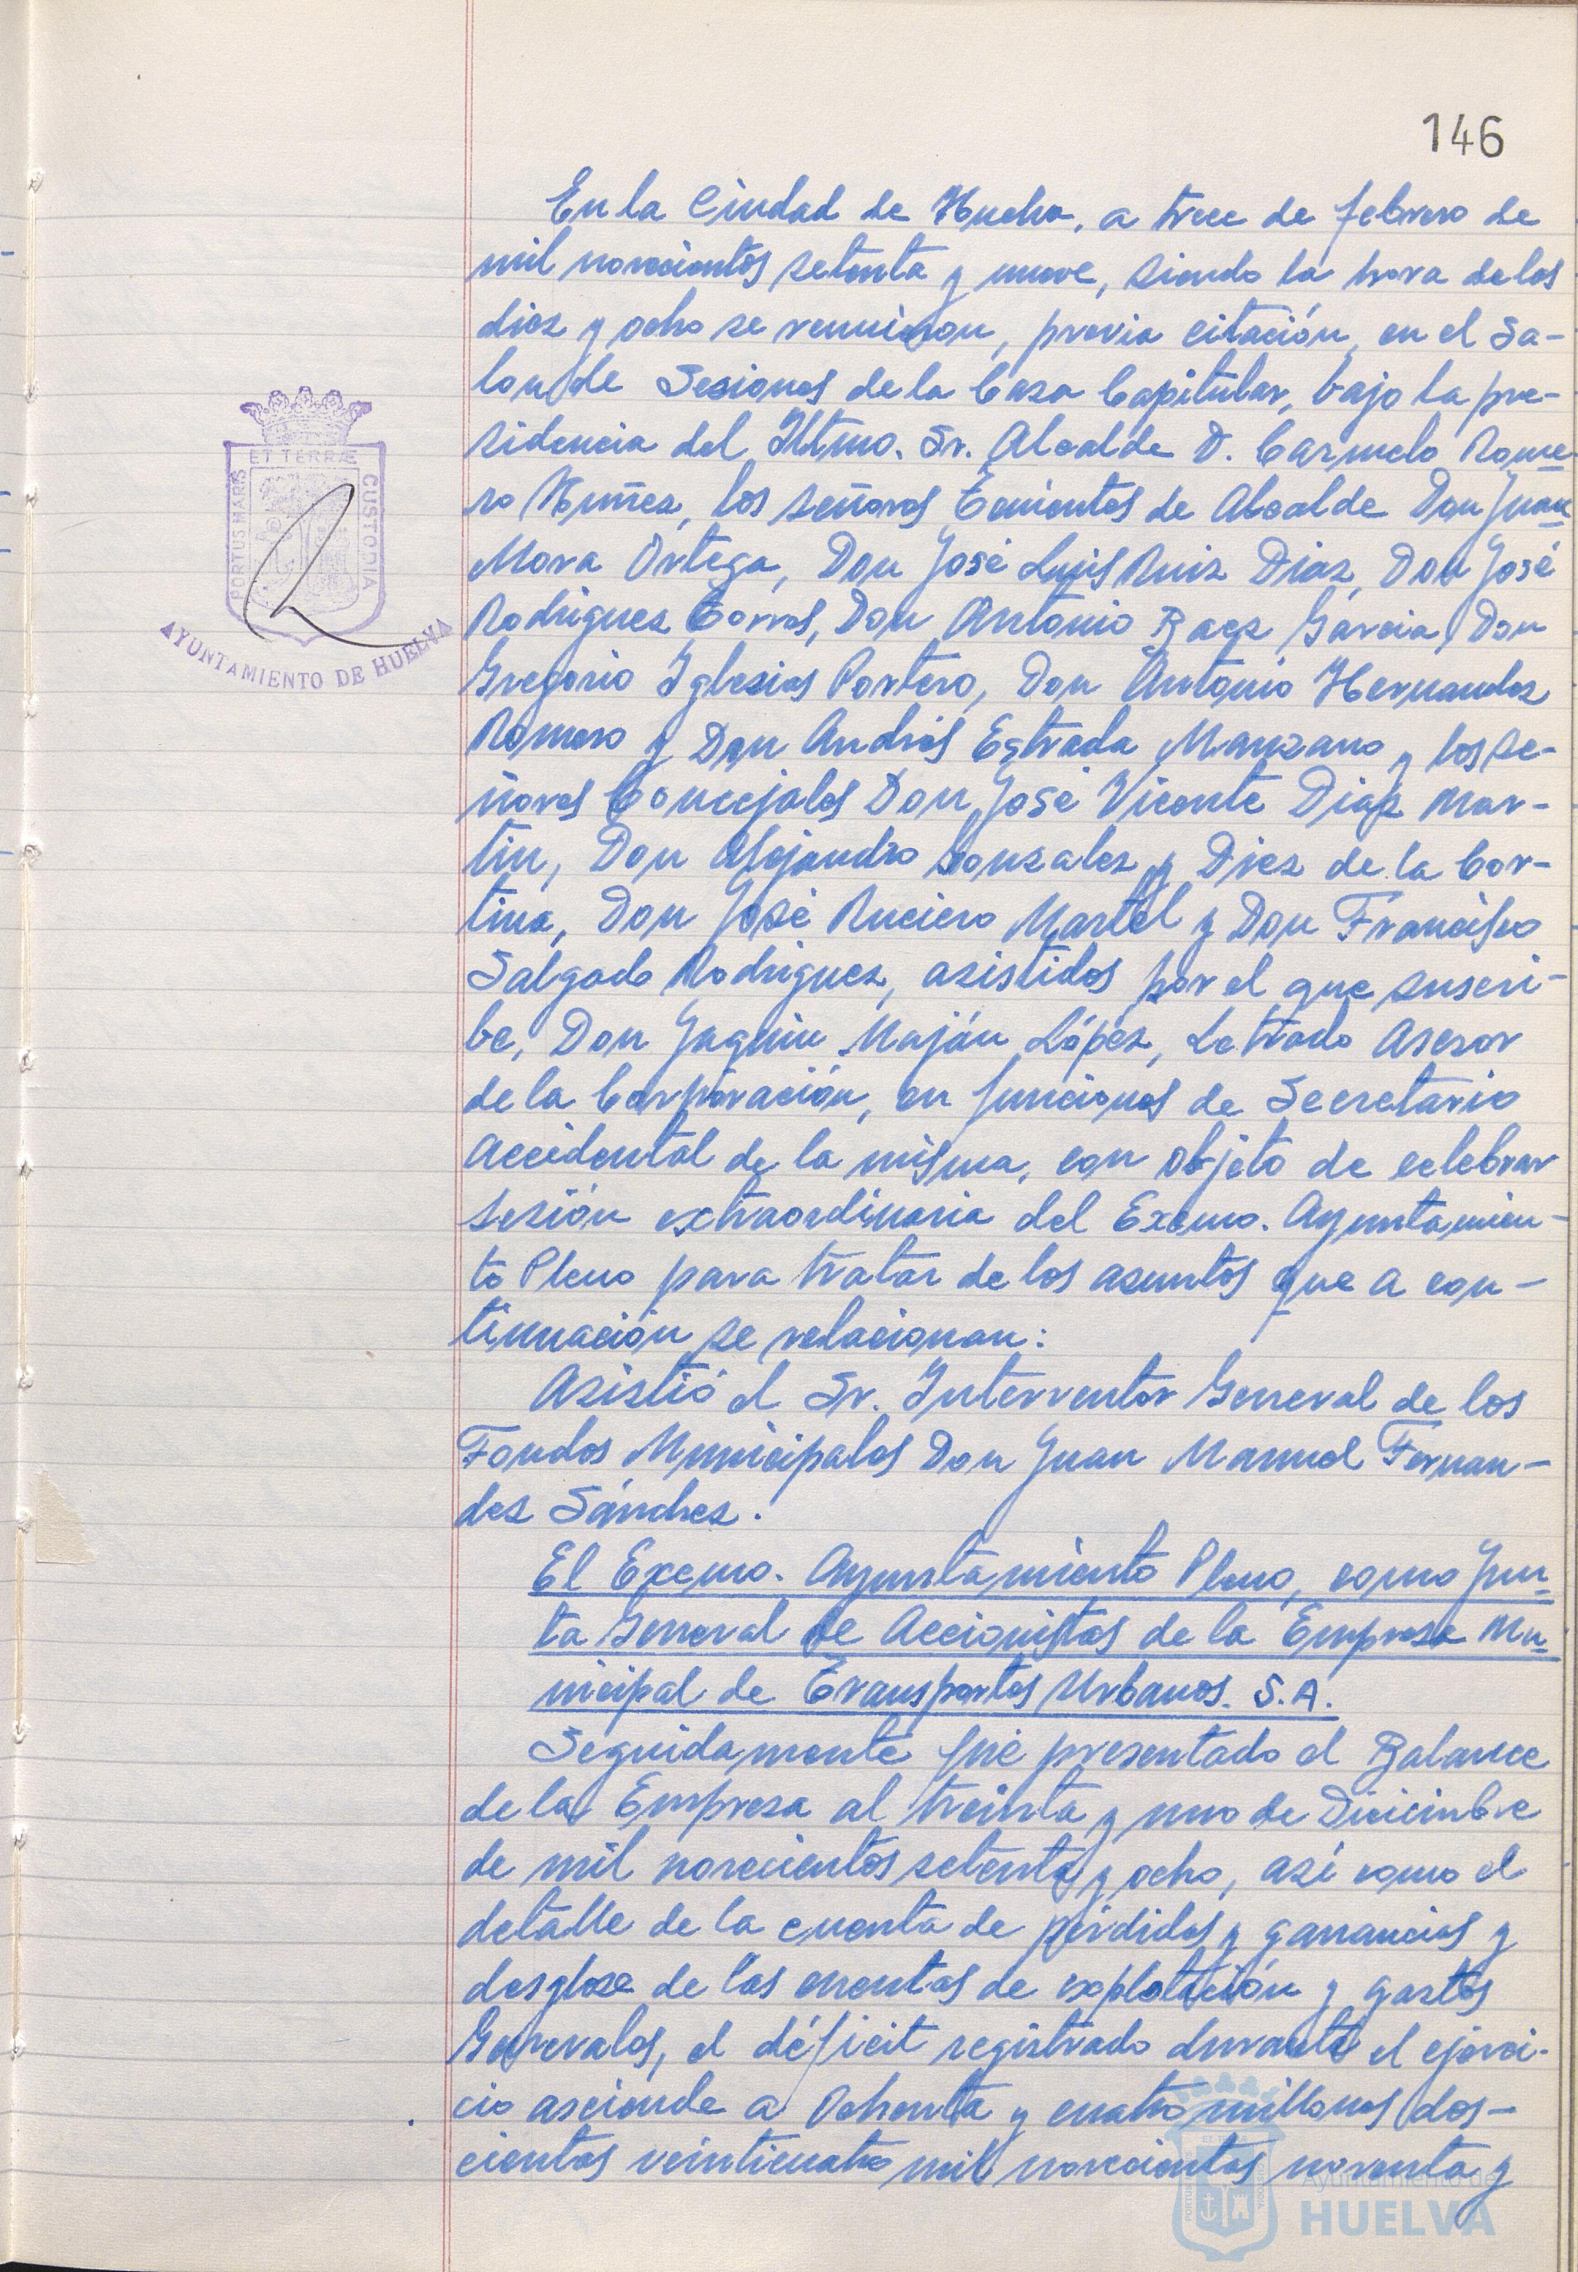 146
En la Ciudad de Huelva, a trece de febrero de
mil novecientos setenta y nueve, siendo la hora de las
diez y ocho se reunieron, previa citación, en el Sa-
lon de Sesiones de la Casa Capitular, bajo la pre-
sidencia del Iltmo. Sr. Alcalde D. Carmelo Rome-
ro Nuñez, los señores Tenientes de Alcalde Don Juan
Mora Ortega, Don José Luis Ruiz Diaz, Don José
Rodriguez Torres, Don Antonio Baez Garcia, Don
Gregorio Iglesias Portero, Don Antonio Hernandez
Romero y Don Andrés Estrada Manzano y los se-
ñores Concejales Don José Vicente Diaz Mar-
tin, Don Alejandro Gonzalez y Diez de la Cor-
tina, Don José Ruciero Martel y Don Francisco
Salgado Rodriguez, asistidos por el que suscri-
be, Don Jaquin Naján López, Letrado Asesor
de la Corporación, en funciones de Secretario
Accidental de la misma, con objeto de celebrar
sesión extraordinaria del Excmo. Ayuntamien-
to Pleno para tratar de los asuntos que a con-
tinuación se relacionan:
Asistió el Sr. Interventor General de los
Fondos Municipales Don Juan Manuel Fernan-
dez Sánchez.
El Excmo. Ayuntamiento Pleno, como Jun-
ta General de Accionistas de la Empresa Mu-
nicipal de Transportes Urbanos. S.A.
Seguidamente fué presentado el Balance
de la Empresa al treinta y uno de Diciembre
de mil novecientos setenta y ocho, asi como el
detalle de la cuenta de pérdidas y ganancias y
desglose de las cuentas de explotación y gastos
Generales, el déficit registrado durante el ejerci-
cio asciende a Ochenta y cuatro millones dos-
cientos veinticuatro mil novecientos noventa y
PORTUS MARIS
ET TERRÆ
CUSTODIA
AYUNTAMIENTO DE HUELVA
Ayuntamiento de
HUELVA